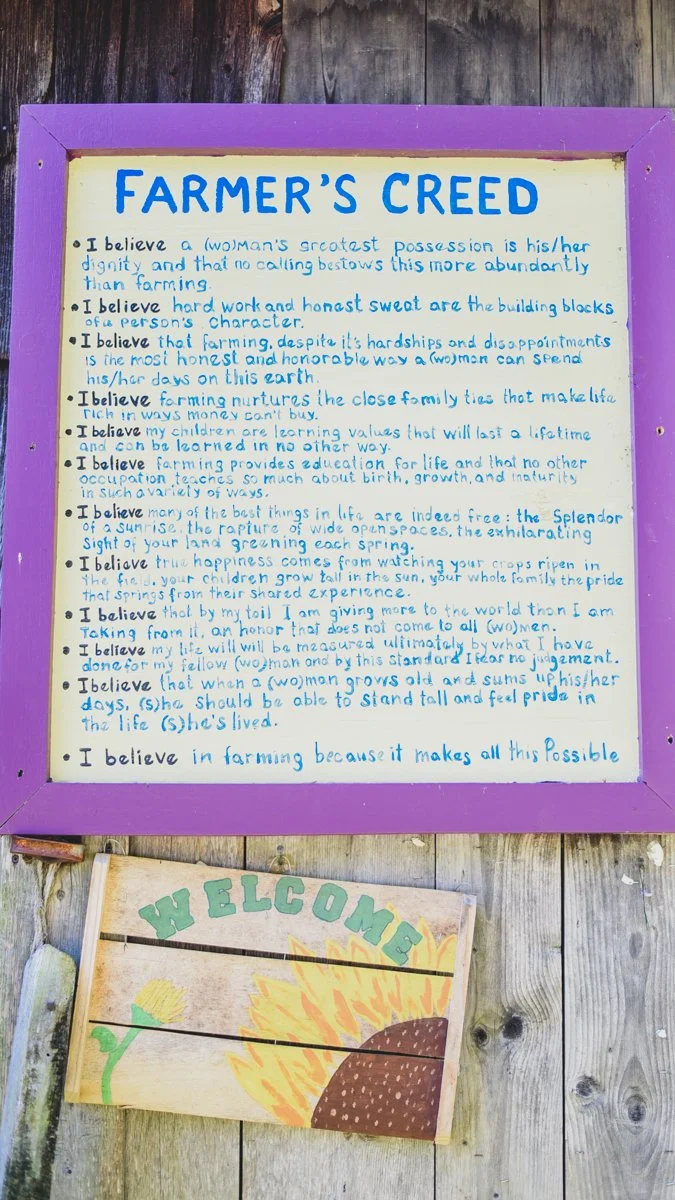 FARMER'S CREED
• I believe a (wo)man's greatest possession is his/her
dignity and that no calling bestows this more abundantly
than farming.
• I believe hard work and honest sweat are the building blocks
of a person's character.
• I believe that farming, despite it's hardships and disappointments
is the most honest and honorable way a (wo)man can spend
his/her days on this earth.
• I believe farming nurtures the close family ties that make life
rich in ways money can't buy.
• I believe my children are learning values that will last a lifetime
and can be learned in no other way.
• I believe farming provides education for life and that no other
occupation teaches so much about birth, growth, and maturity
in such a variety of ways.
• I believe many of the best things in life are indeed free: the Splendor
of a sunrise, the rapture of wide open spaces, the exhilarating
Sight of your land greening each spring.
• I believe true happiness comes from watching your crops ripen in
the field, your children grow tall in the sun, your whole family the pride
that springs from their shared experience.
• I believe that by my toil I am giving more to the world than I am
Taking from it, an honor that does not come to all (wo)men.
• I believe my life will will be measured ultimately by what I have
done for my fellow (wo)man and by this standard I fear no judgement.
• I believe that when a (wo)man grows old and sums up his/her
days, (s)he should be able to stand tall and feel pride in
the life (s)he's lived.
• I believe in farming because it makes all this Possible
WELCOME